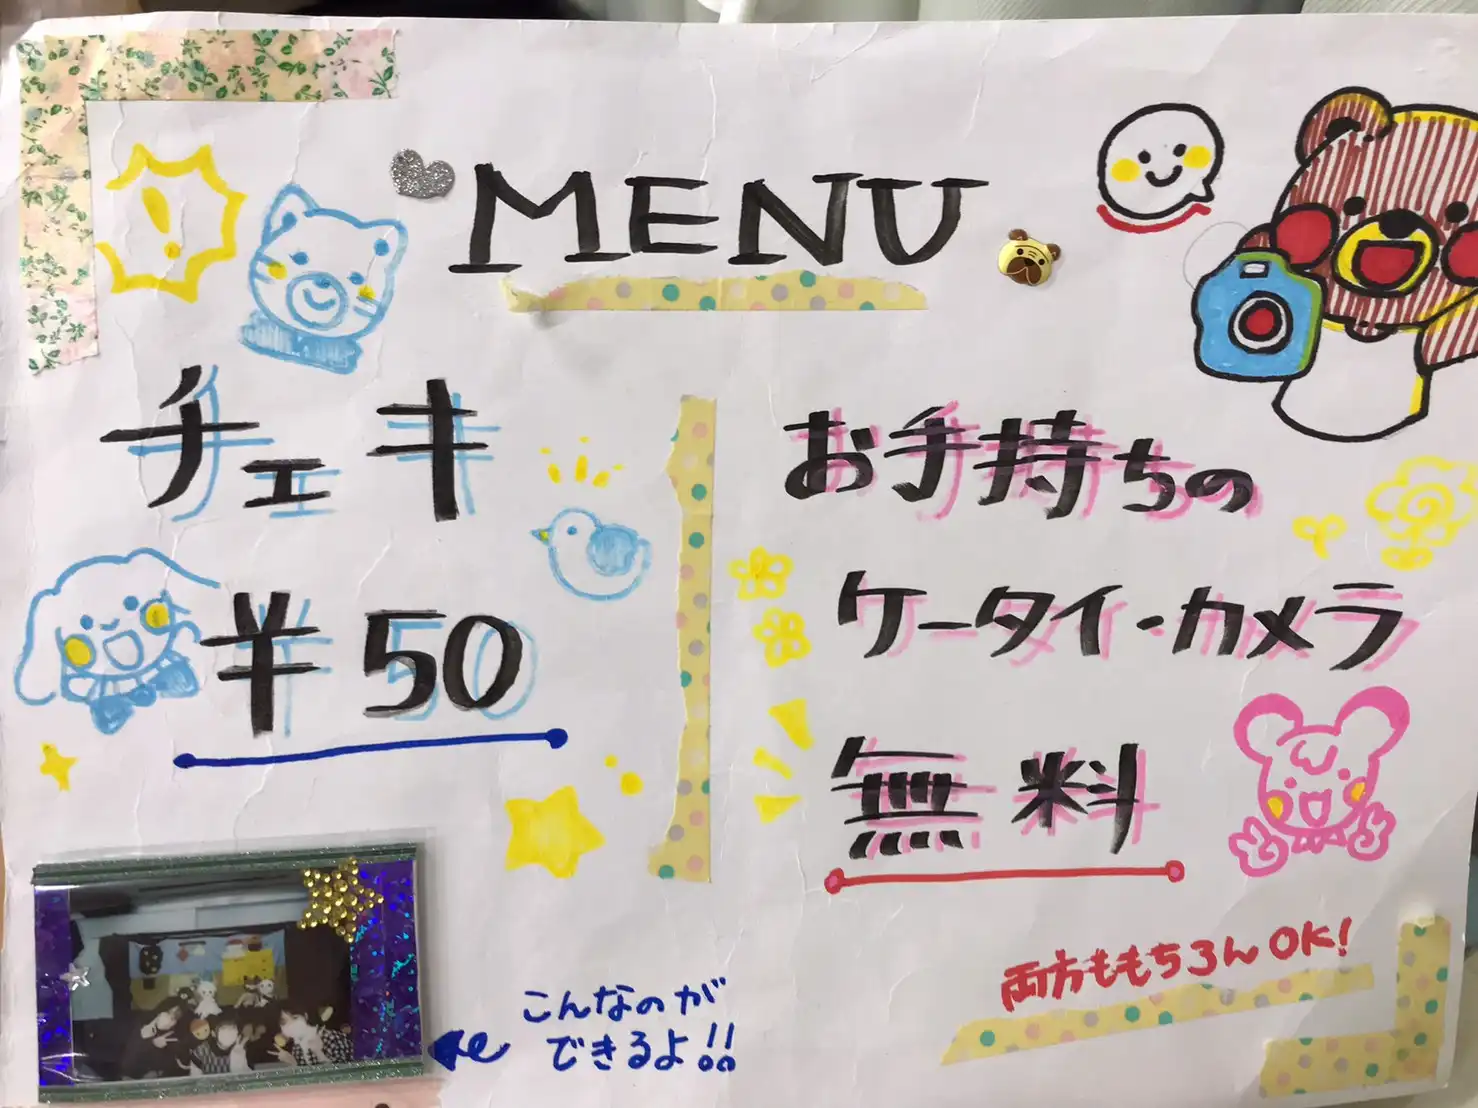 MENU
チェキ
¥50
こんなのが
できるよ!!
お手持ちの
ケータイ・カメラ
無料
両方ももちろんOK!